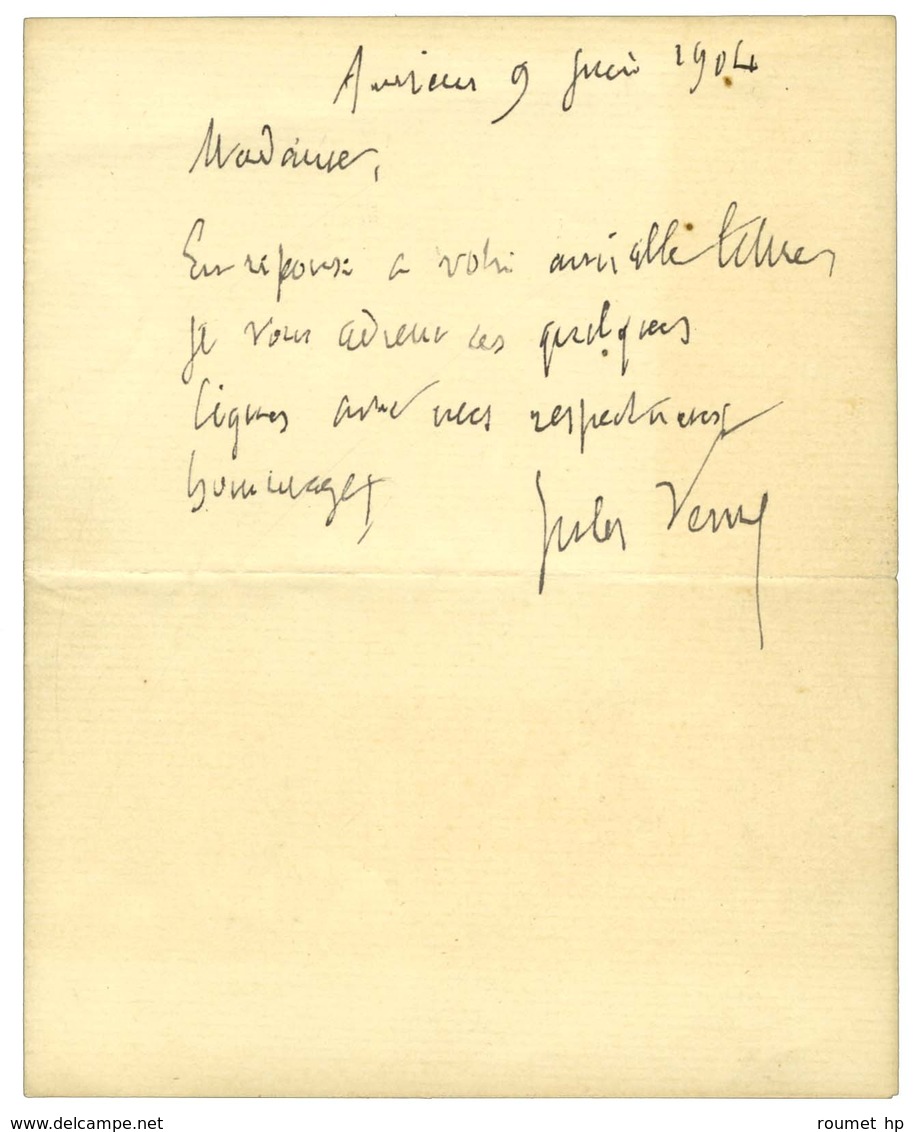 Amiens 9 juin 1904
Madame,
En reponse a votre amicalle lettre,
je vous adresse ces quelques
lignes avec mes respectueux
hommages
Jules Verne
www.delcampe.net
roumet hp